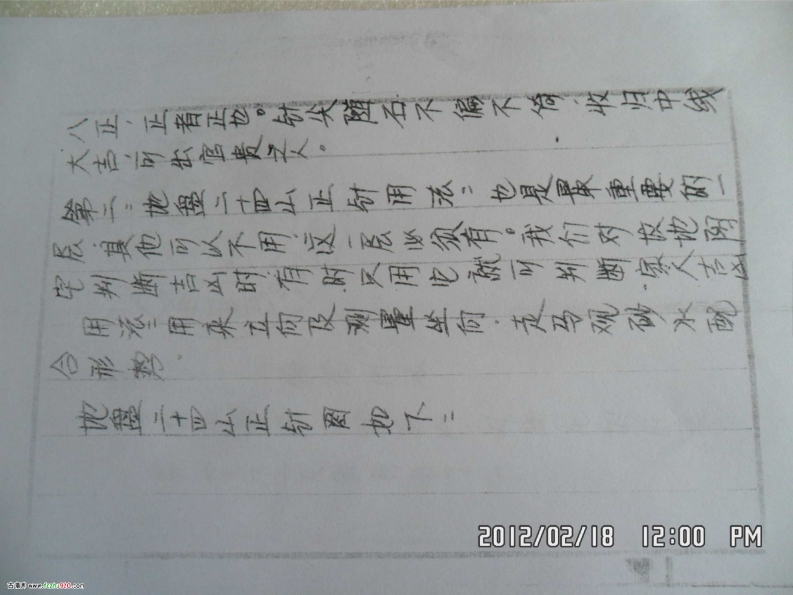 八正，正者正也。针尖随石不偏不倚，收归中线
大吉，可出富贵之人。
第二：地盘二十四山正针用法：也是最重要的一
层，其他可以不用，这一层必须有。我们对坟地阴
宅判断吉凶时，有时只用它就可判断，家人吉凶
用法：用来立向及测量坐向，走马观砂水配
合形势。
地盘二十四山正针图如下：
2012/02/18 12:00 PM